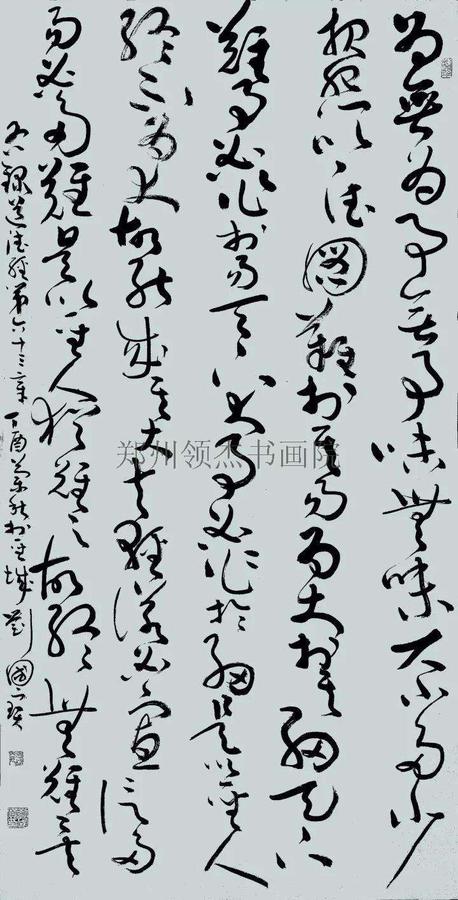 為無為事無事味無味大小多少
報怨以德圖難於其易為大於其細天下
難事必作於易天下大事必作於細是以聖人
終不為大故能成其大夫輕諾必寡信多
易必多難是以聖人猶難之故終無難矣
右錄道德經第六十三章 丁酉 於 城 劉國寶
郑州领杰书画院